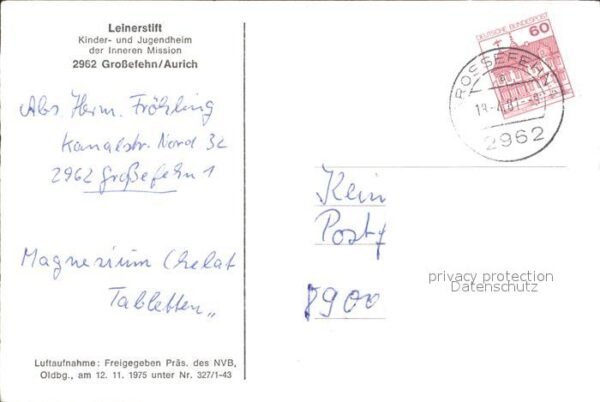 Leinerstift
Kinder- und Jugendheim
der Inneren Mission
2962 Großefehn/Aurich
Abs Herm. Fröhling
Kanalstr. Nord 32
2962 Großefehn 1
Magnesium Chelat
Tabletten„
Luftaufnahme: Freigegeben Präs. des NVB,
Oldbg., am 12. 11. 1975 unter Nr. 327/1-43
DEUTSCHE BUNDESPOST
60
ROSSEFEHN
2962
Kein
8900
privacy protection
Datenschutz